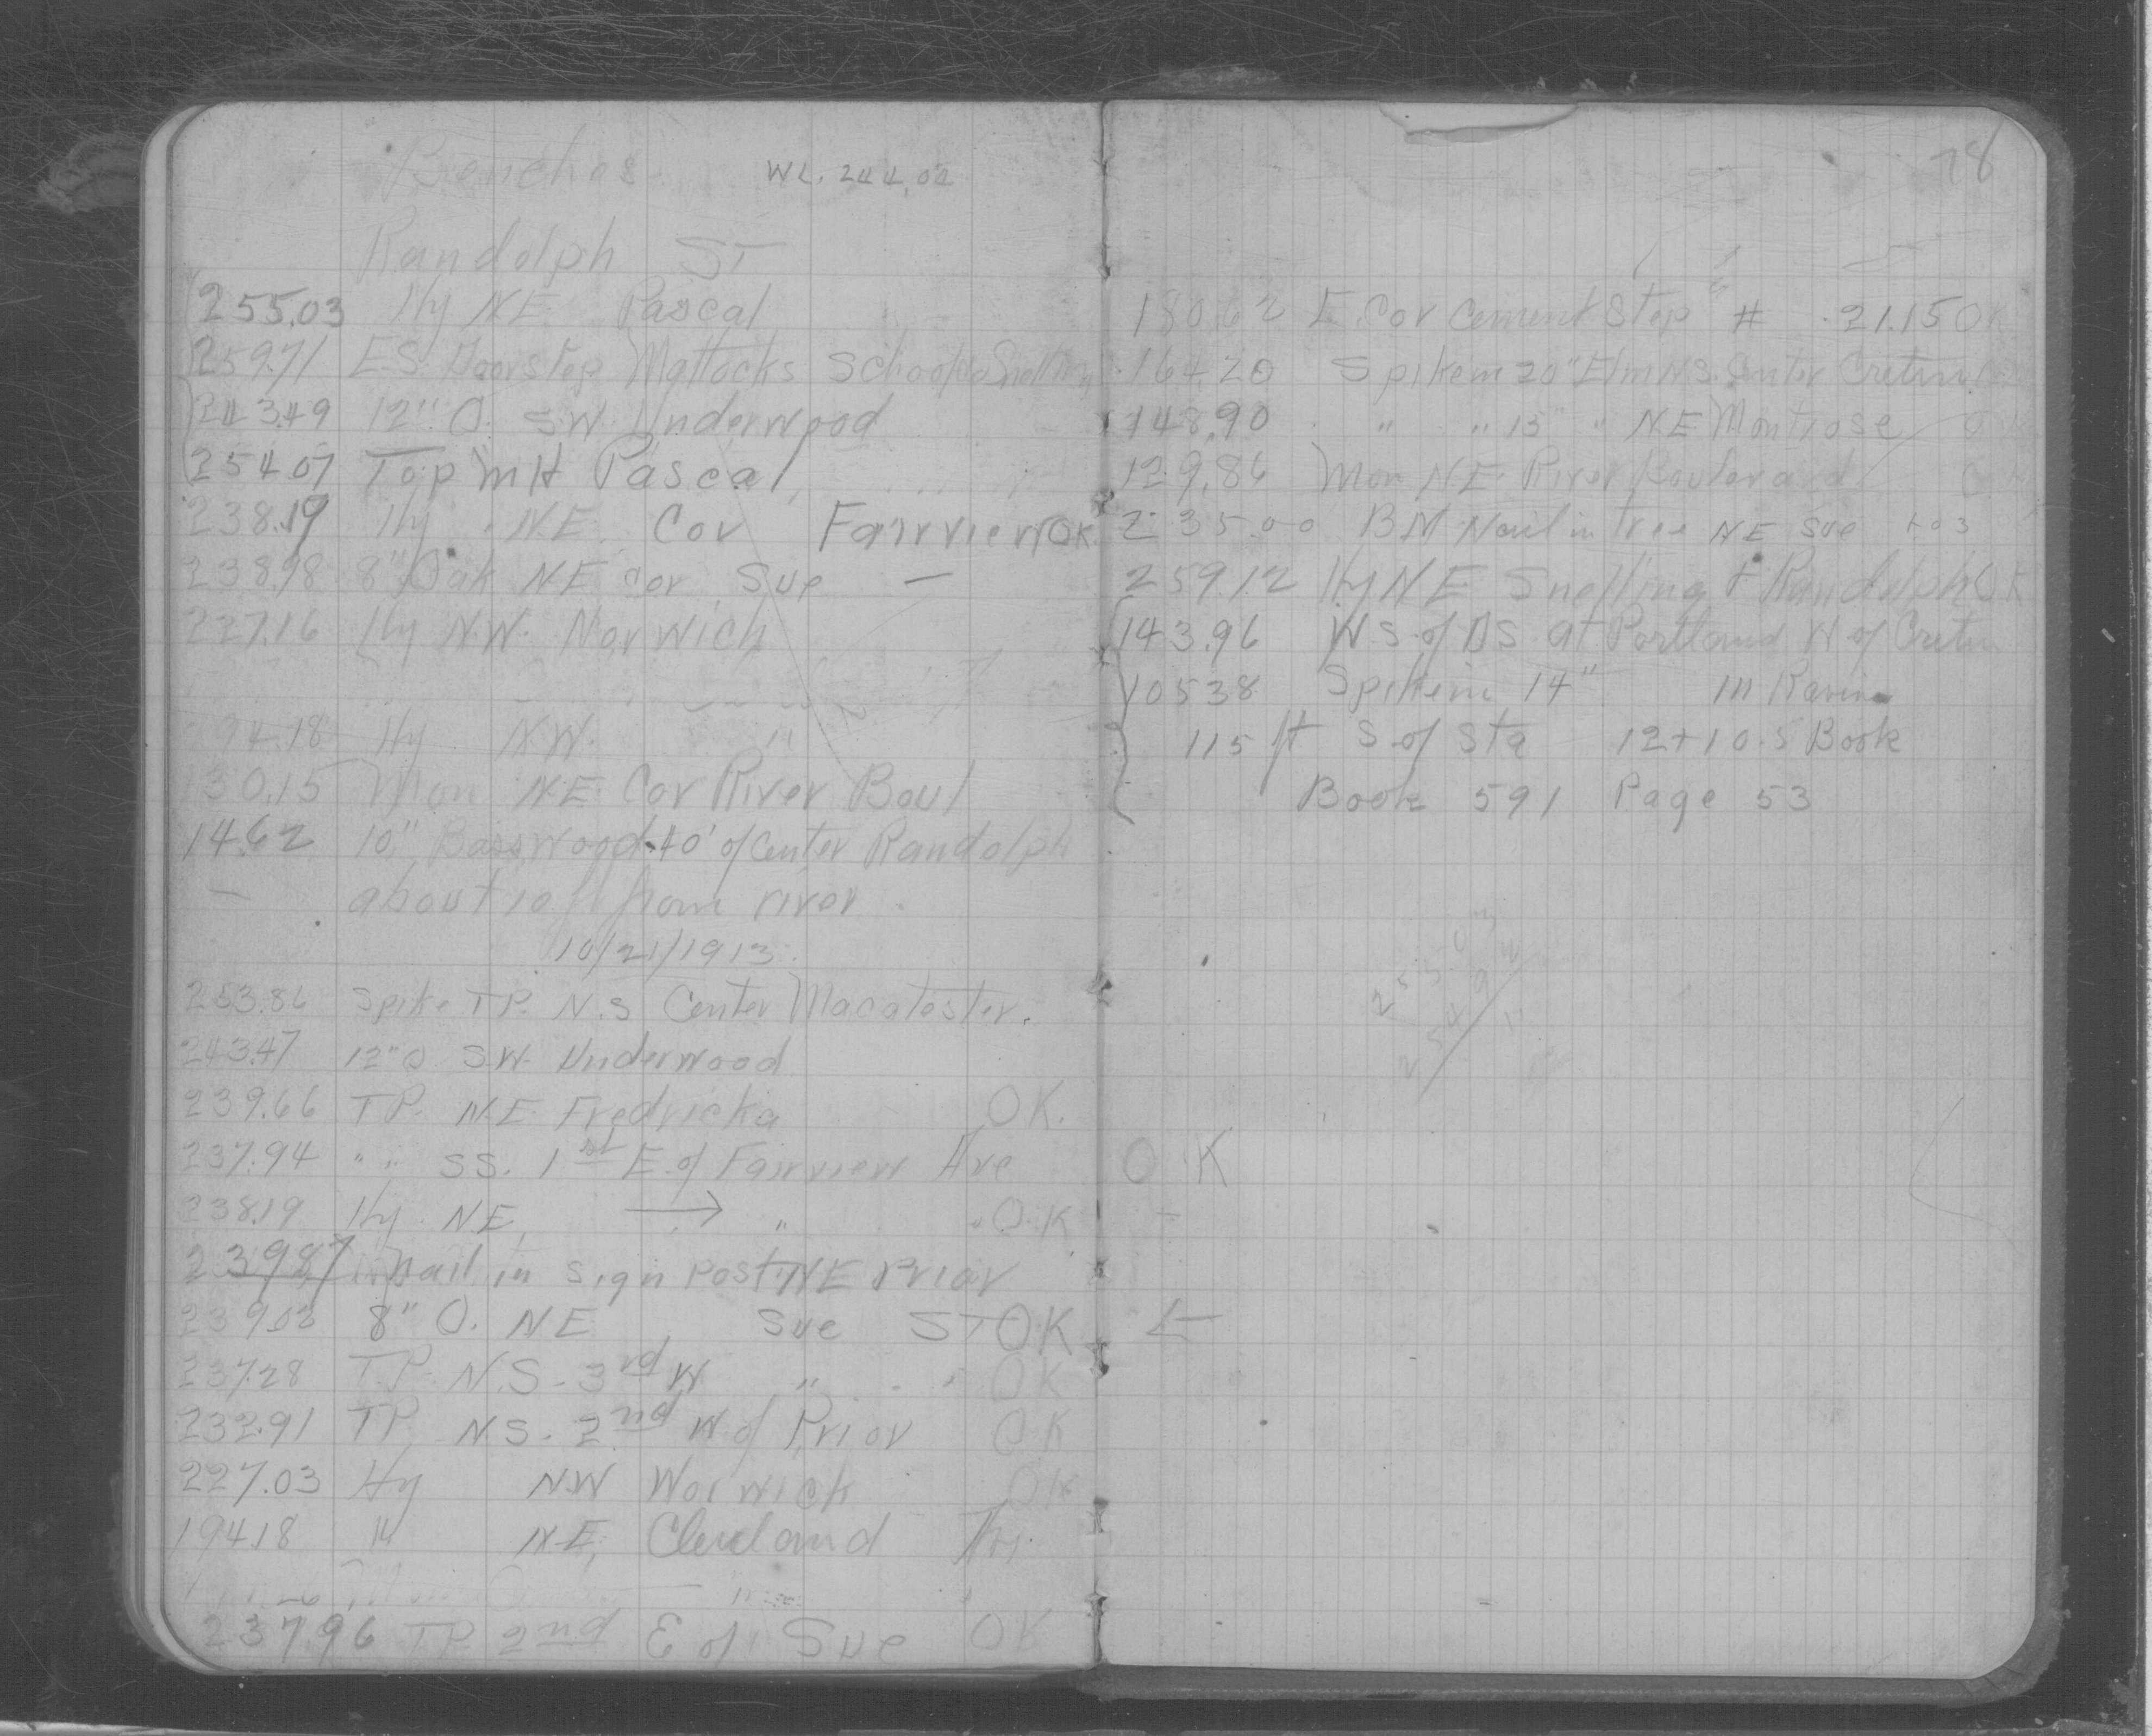 Benches WL. 244.02
Randolph ST
255.03 Hy NE. Pascal
259.71 E.S. Doorstep Mattocks School Snelling
243.49 12" O. SW. Underwood
254.07 Top MH Pascal
238.19 Hy. N.E. Cor Fairview OK
238.98 8" Oak NE cor Sue —
227.16 Hy N.W. Norwich
194.18 Hy N.W. "
130.15 Mon NE Cor River Boul
14.62 10" Basswood 40' of Center Randolph
— about 10 ft from river.
10/21/1913.
253.86 Spike T.P. N.S Center Macalester.
243.47 12" O. S.W. Underwood
239.66 T.P. N.E. Fredricka OK.
237.94 " " SS. 1st E. of Fairview Ave OK
238.19 Hy. NE, → " " O.K
239.87 Nail in sign post NE Prior
239.03 8" O. NE Sue ST OK ←
237.28 T.P. N.S. 3rd W " " OK
232.91 TP N.S. 2nd W of Prior OK
227.03 Hy NW Worwick OK
194.18 " N.E. Cleveland
237.96 TP. 2nd E of Sue OK
78
180.62 E. Cor Cement Step # 21.15 OK
164.20 Spike in 20" Elm N.S. Center Cretin
148.90 " " 15" " NE Montrose
129.86 Mon NE River Boulevard
235.00 BM Nail in tree NE Sue
259.12 Hy NE Snelling & Randolph OK
143.96 W.S. of DS. at Portland W of Cretin
105.38 Spike in 14" in Ravine
115 ft S. of Sta 12+10.5 Book
Book 591 Page 53